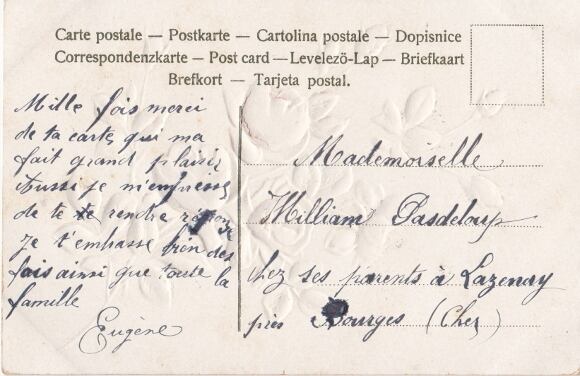 Carte postale — Postkarte — Cartolina postale — Dopisnice
Correspondenzkarte — Post card — Levelező-Lap — Briefkaart
Brefkort — Tarjeta postal.
Mille fois merci
de ta carte, qui ma
fait grand plaisir
Aussi je m'empresse
de te rendre réponse
Je t'embasse bien des
fois ainsi que toute la
famille
Eugène
Mademoiselle
William Pasdeloup
chez ses parents à Lazenay
près Bourges (Cher)